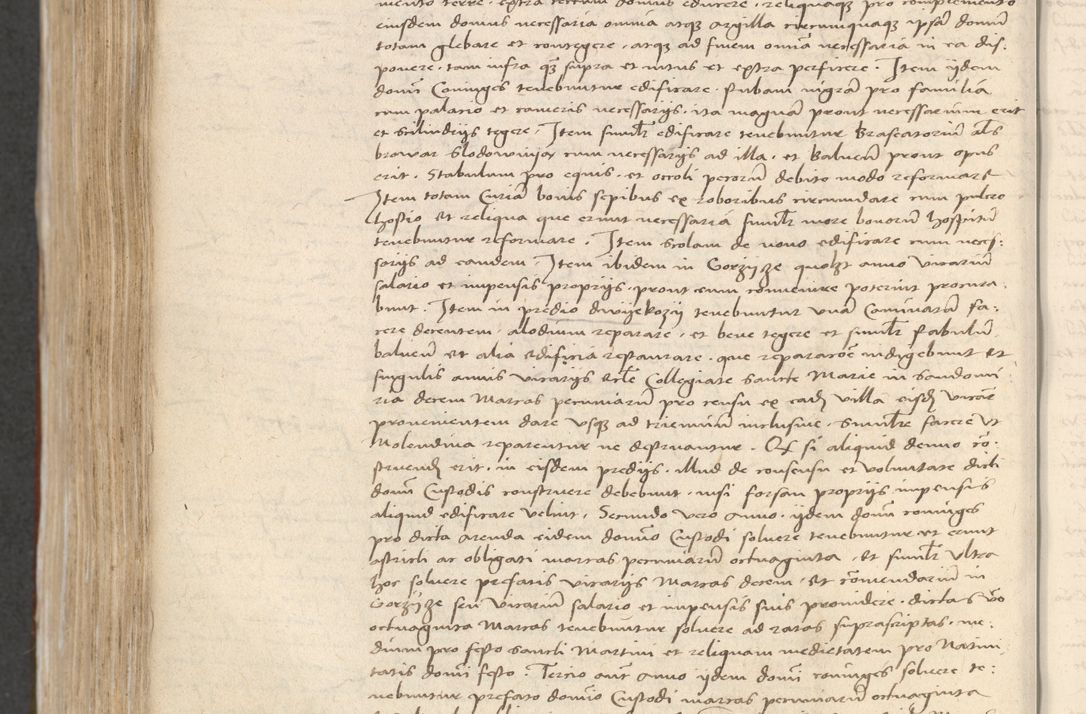 mento terre, extra tectum domus educere, reliquaqꝫ pro complemento
eiusdem domus necessaria omnia atqꝫ argilla circumquaqꝫ ipsā domū
totam glebare et contegere, atqꝫ ad finem omīa necessaria in ea dis:
ponere, tam infra qꝫ supra et intus et extra perficere. Item ijdem
domī Coniuges tenebuntur edificare stubam nigrā pro familia
cum palacio et cameris necessarijs, ita magnā prout necessarium erit
et scilindrijs tegere, Item simīlr edificare tenebuntur Braseatoriū als
browar Slodowniją cum necessarijs ad illa, et Balneū prout opus
erit. Stabulum pro equis, et occoli pecorū debito modo reformare
Item totam Curiā bonis sepibus ex roboribus circumdare cum pulcro
hostio et reliqua que erunt necessaria simīlr more bonorū hospitū
tenebuntur reformare. Item scolam de nouo edificare cum neces:
sarijs ad eandem Item ibidem in Gorzijcze quolꝫt anno vicariū
salario et impensis proprijs, prout cum conuenire poterint procura:
bunt. Item in predio dwijekozij tenebuntur vnā Comīnatā fa:
cere decentem, alodium reparare, et bene tegere et simīlr stabulū
balneū et alia edificia restaurare, que reparacōē indigebunt et
singulis annis vicarijs eccle Collegiate sancte Marie in sandomi:
ria decem Marcas pecuniariū pro censu ex eadē villa eisdē vicār
prouenientem dare vsqꝫ ad trienniū inclusiue, Simīlre facere vt
Molendina reparentur ne destruantur. Qꝫ si aliquid denuo cō:
struendē erit, in eisdem predijs, illud de consensu et voluntate dicti
domī Custodis construere debebunt, nisi forsan proprijs impensis
aliquid edificare velint, Secundo vero anno, ijdem domī coniuges
pro dicta arenda eidem domīo Custodi soluere tenebuntur et erunt
astricti ac obligati marcas pecuniarū octuaginta, et simīlr vltra
hoc soluere prefatis vicarijs Marcas decem, et cōmendariū in
Gorzijcze seu vicariū salario et impensis suis prouidere, dictas vō
octuaginta Marcas tenebuntur soluere ad ratas suprascriptas, me:
diam pro festo sancti Martini et reliquam medietatem pro Natiui:
tatis domī festo. Tercio aut̄ anno ijdem domī coniuges soluere te:
nebuntur prefato domīo Custodi marcas pecuniarū octuaginta